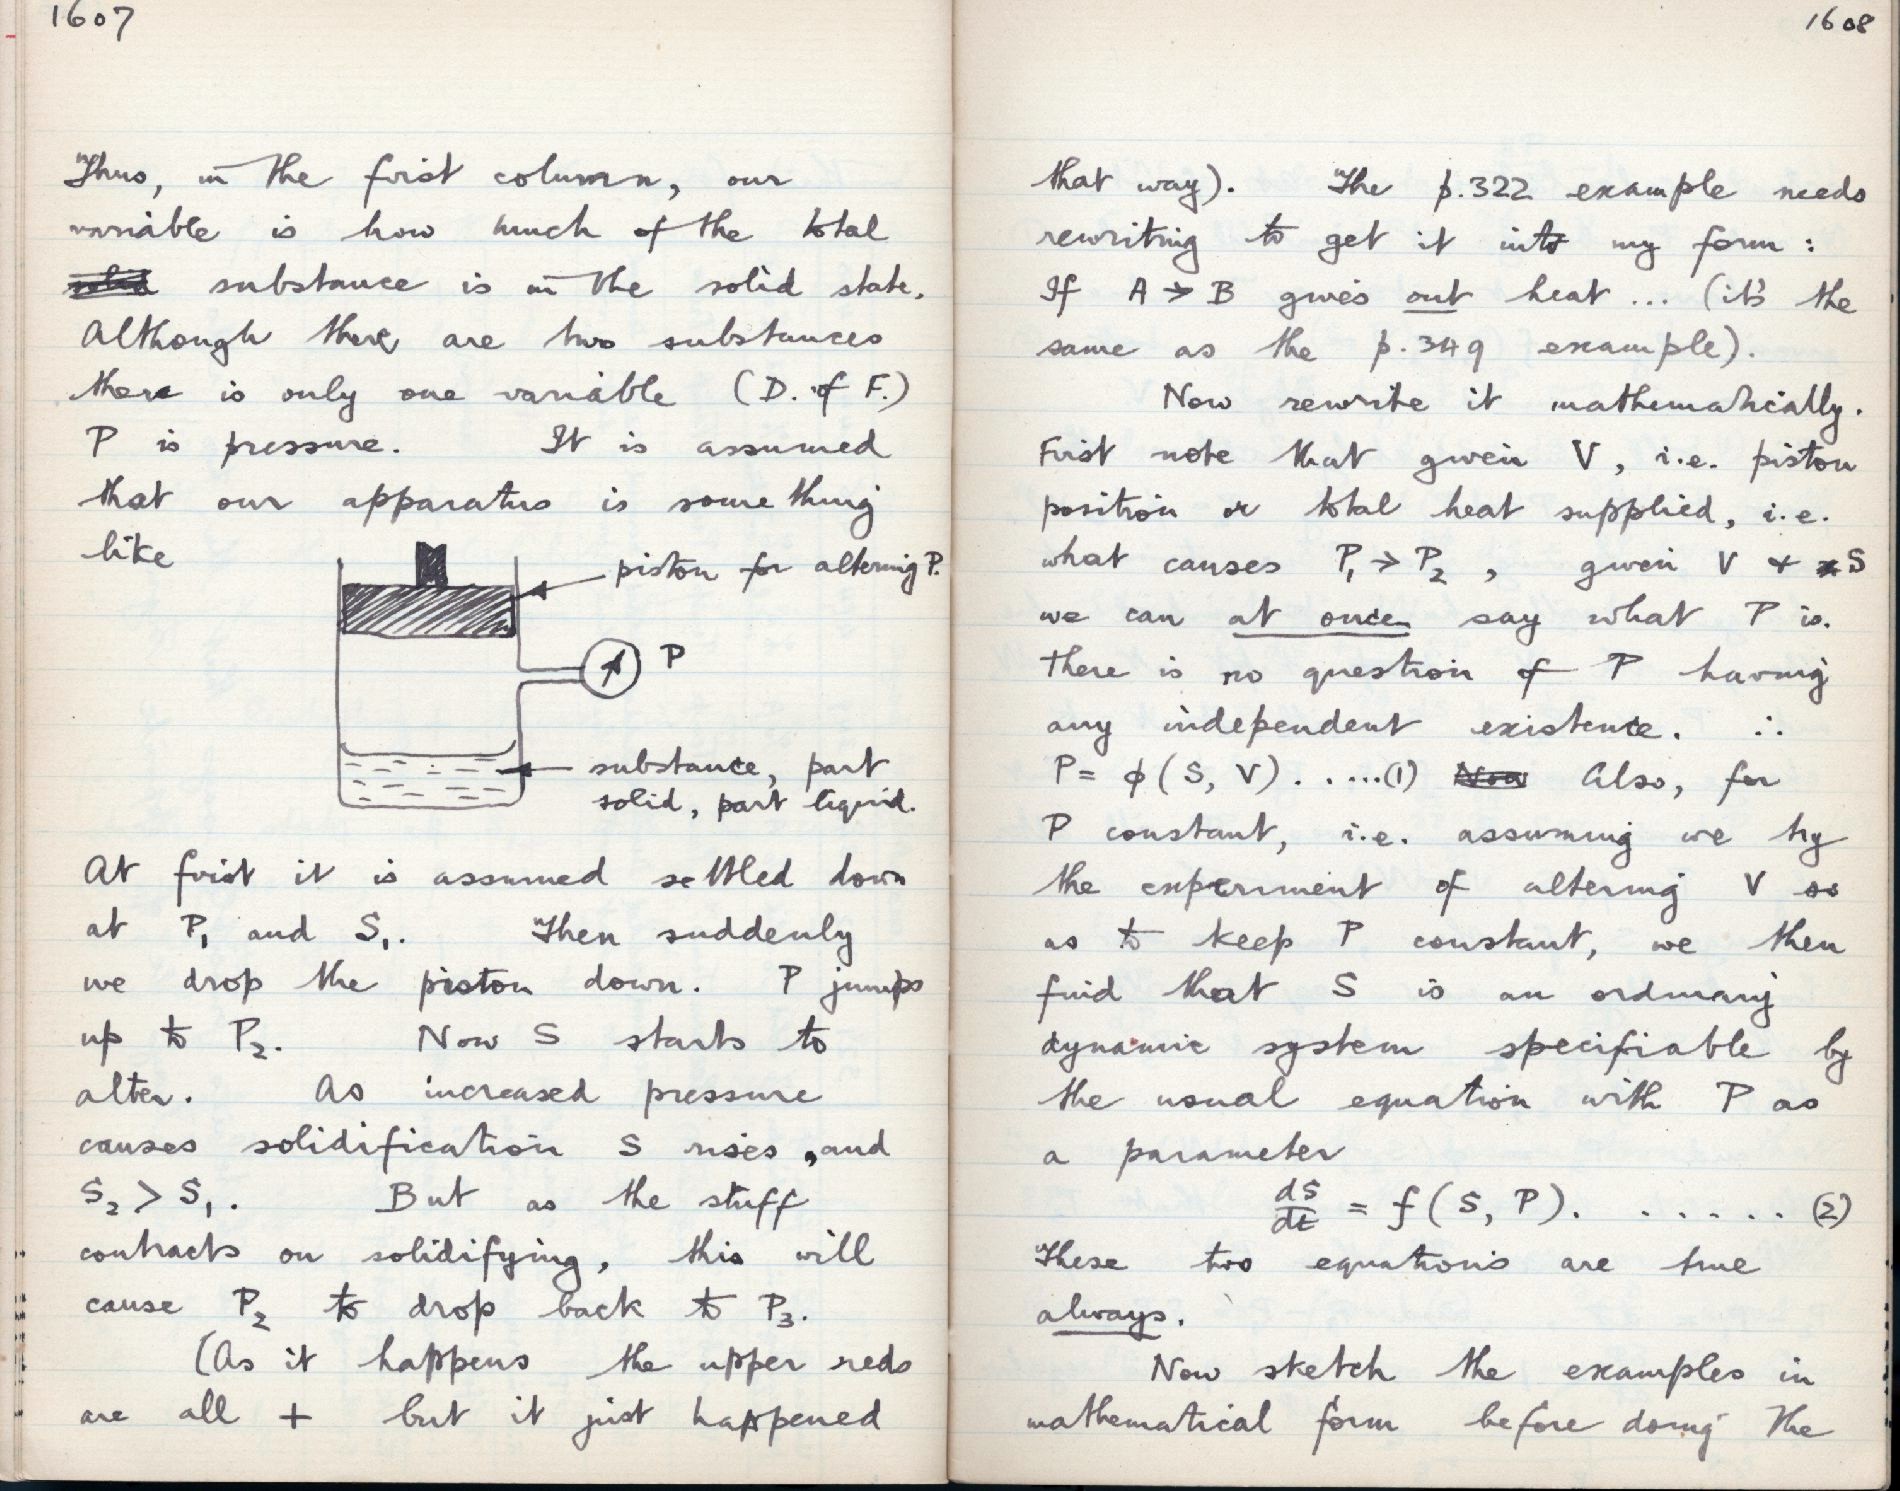 1607
Thus, in the first column, our
variable is how much of the total
solid substance is in the solid state.
Although there are two substances
there is only one variable (D. of F.)
P is pressure. It is assumed
that our apparatus is something
like
piston for altering P.
P
substance, part
solid, part liquid.
At first it is assumed settled down
at P₁ and S₁. Then suddenly
we drop the piston down. P jumps
up to P₂. Now S starts to
alter. As increased pressure
causes solidification S rises, and
S₂ > S₁. But as the stuff
contracts on solidifying, this will
cause P₂ to drop back to P₃.
(As it happens the upper reds
are all + but it just happened
1608
that way). The p.322 example needs
rewriting to get it into my form:
If A → B gives out heat ... (it's the
same as the p.349 example).
Now rewrite it mathematically.
First note that given V, i.e. piston
position or total heat supplied, i.e.
what causes P₁ → P₂, given V + S
we can at once say what P is.
There is no question of P having
any independent existence. ∴
P = φ(S, V). .....(1) Now Also, for
P constant, i.e. assuming we try
the experiment of altering V so
as to keep P constant, we then
find that S is an ordinary
dynamic system specifiable by
the usual equation with P as
a parameter
dS/dt = f(S, P). ...... (2)
These two equations are true
always.
Now sketch the examples in
mathematical form before doing the